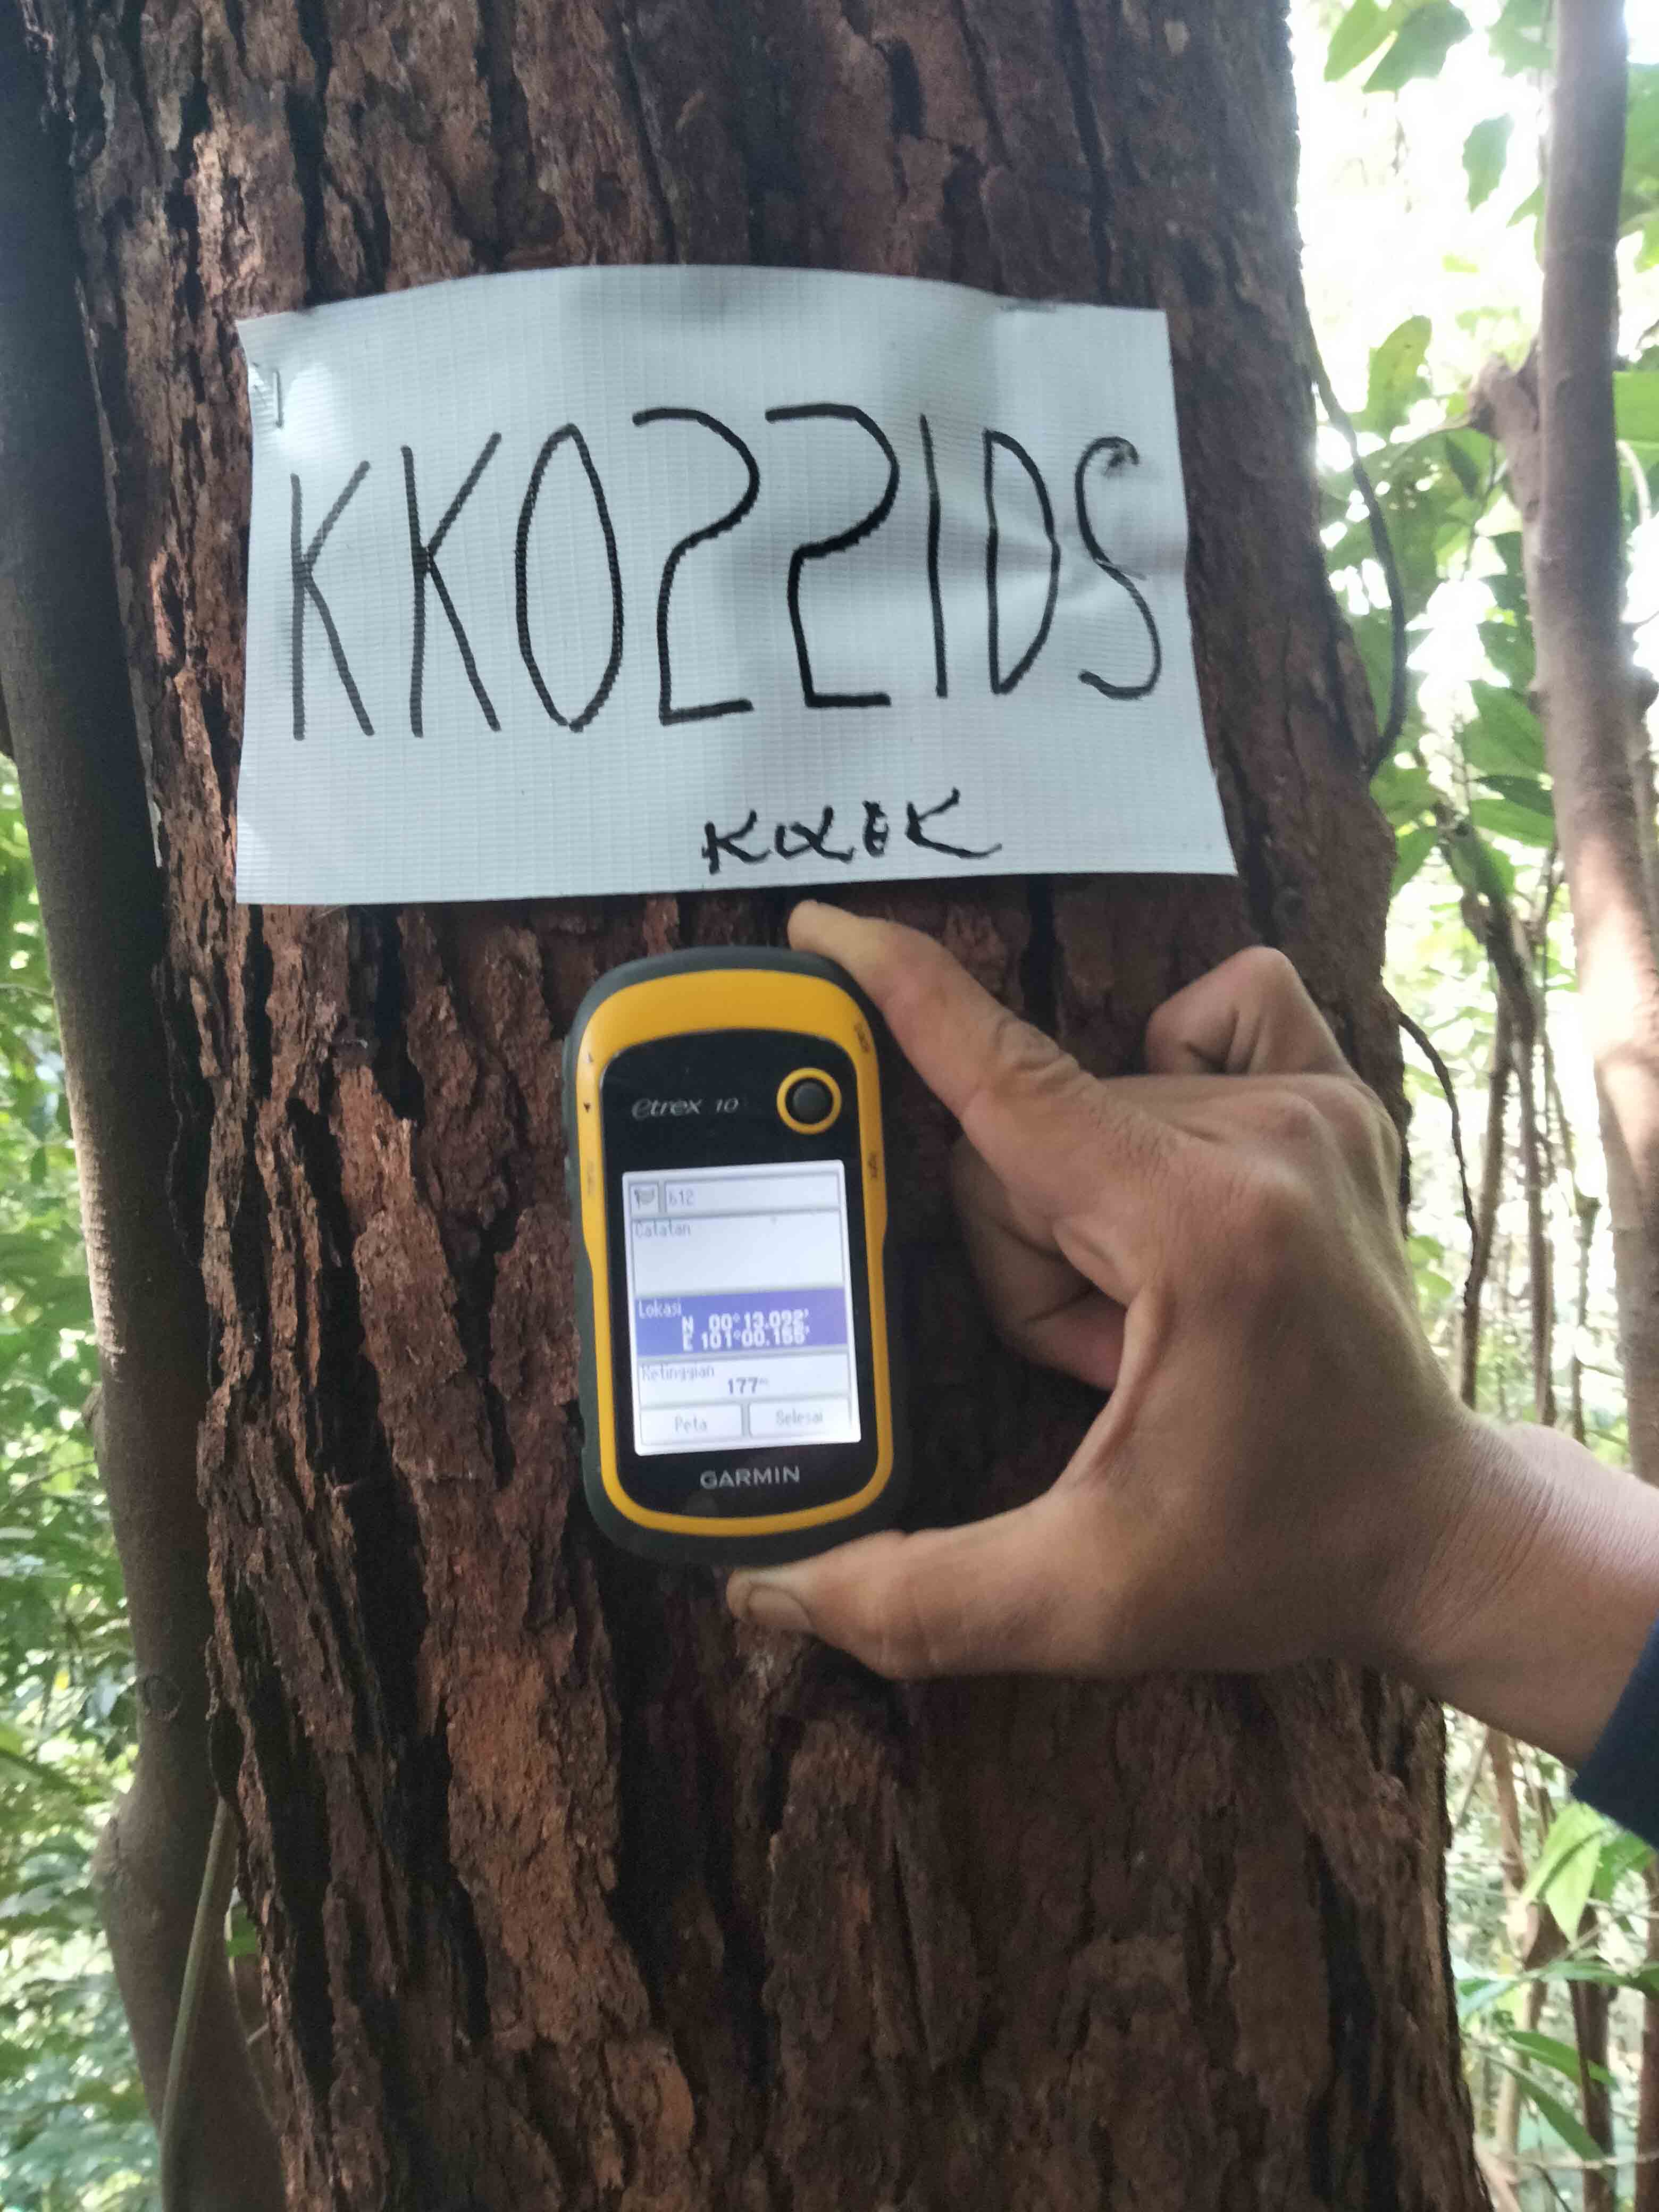 KKO221DS
KULEK
etrex 10
612
Catatan
Lokasi
N 00°13.092'
E 101°00.156'
Ketinggian
177m
Peta Selesai
GARMIN
light